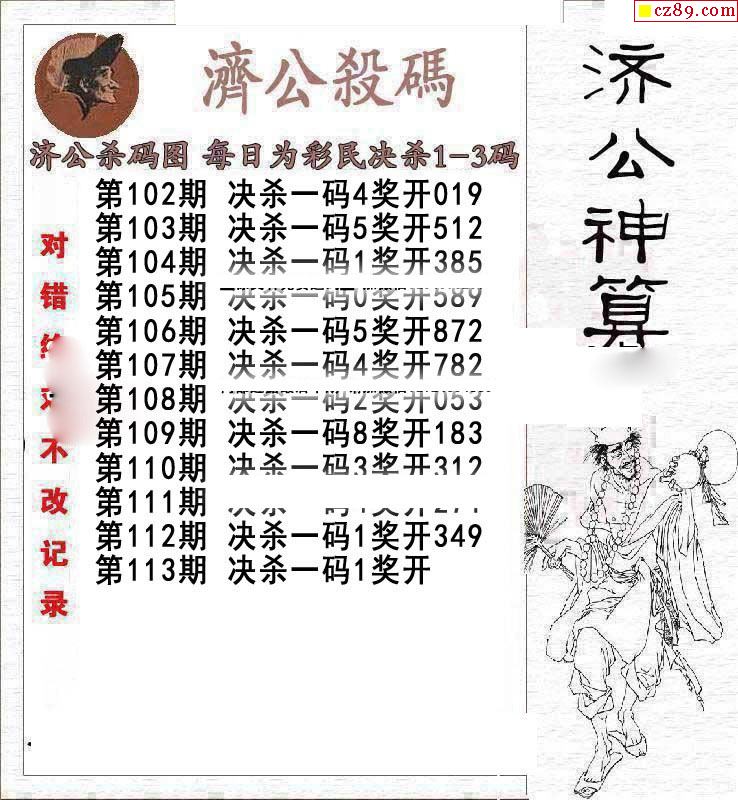 cz89.com
濟公殺碼
济公杀码图 每日为彩民决杀1-3码
第102期 决杀一码4奖开019
第103期 决杀一码5奖开512
第104期 决杀一码1奖开385
第105期 决杀一码0奖开589
第106期 决杀一码5奖开872
第107期 决杀一码4奖开782
第108期 决杀一码2奖开053
第109期 决杀一码8奖开183
第110期 决杀一码3奖开312
第111期 决杀一码 奖开
第112期 决杀一码1奖开349
第113期 决杀一码1奖开
对错 不改记录
济公神算